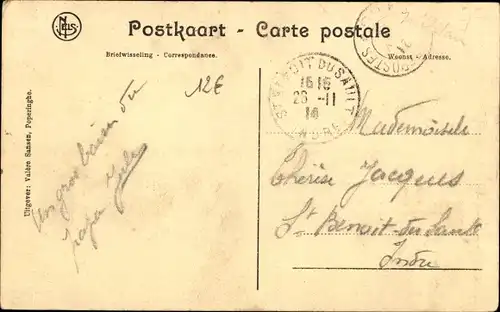 NELS
Postkaart - Carte postale
Briefwisseling - Correspondance.
Woonst - Adresse.
12E
POSTES
ST BENOIT DU SAULT
16 15
23 -11
14
INDRE
Un gros baiser du
papa
Mademoiselle
Thérèse Jacques
St Benoit-du-Sault
Indre
Uitgever: Valère Sansen, Poperinghe.